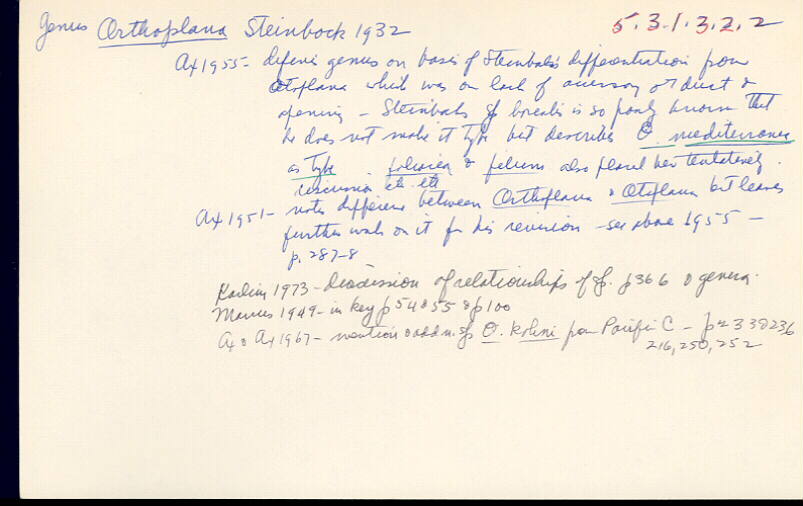 Genus Orthoplana Steinbock 1932 5.3.1.3.2.2
Ax 1955- defines genus on basis of Steinbock's differentiation from
Otoplana which was on lack of accessory duct &
opening - Steinbock's sp borealis is so poorly known that
he does not make it type but describes O. mediterranea
as type. & filum also placed here tentatively.
discussion etc etc
Ax 1951- notes difference between Orthoplana & Otoplana but leaves
further work on it for his revision - see above 1955 -
p. 287-8
Karling 1973 - discussion of relationships of sp. p366 & genera.
Marcus 1949 - in key p 54 & 55 & p100
Ax & Ax 1967 - mention & addn. sp O. kohni from Pacific C - p 233 & 236
216, 250, 252